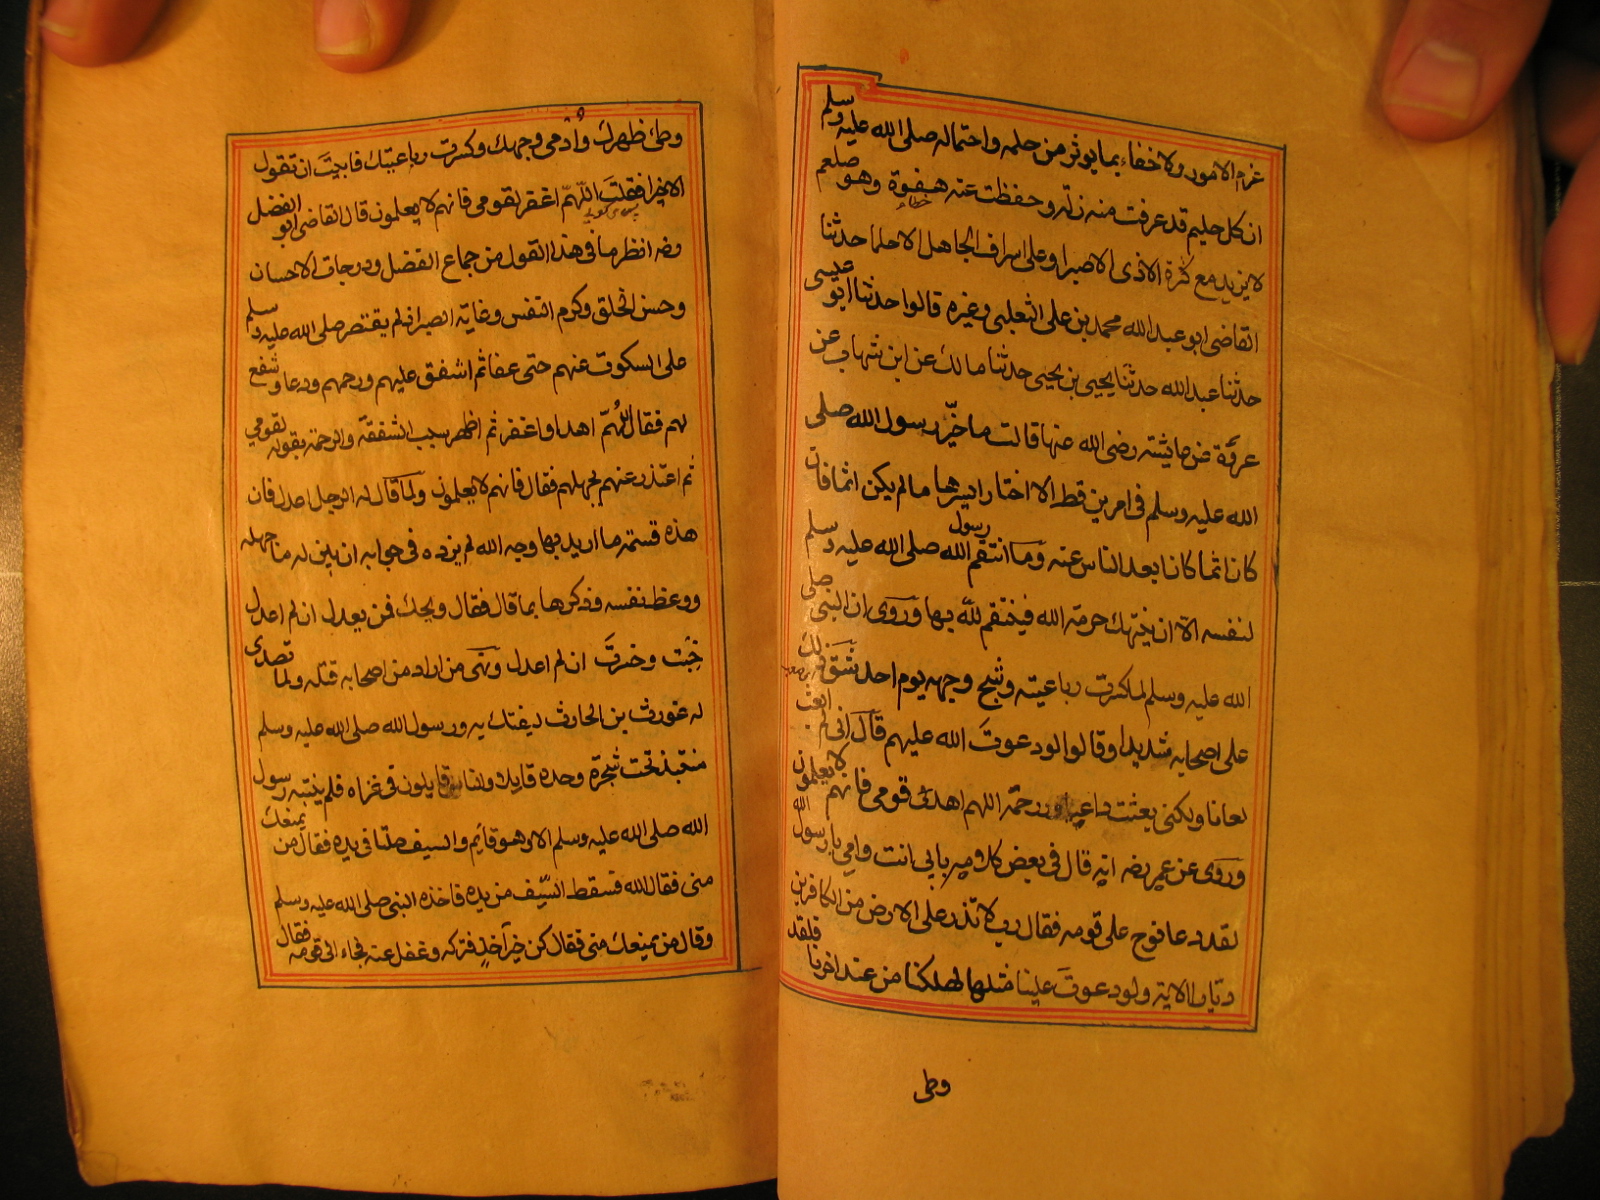 عزم الامور ولا خفاء بما يوثر من حلمه واحتماله صلى الله عليه وسلم
ان كل حليم قد عرفت منه زلة وحفظت عنه هفوة وهو صلعم
خطاء
لا يزيد مع كثرة الاذى الا صبرا وعلى اسراف الجاهل الا حلما حدثنا
القاضى ابو عبد الله محمد بن على الثعلبى وغيره قالوا حدثنا ابو عيسى
حدثنا عبد الله حدثنا يحيى بن يحيى حدثنا مالك عن ابن شهاب عن
عروة عن عايشه رضى الله عنها قالت ما خير رسول الله صلى
الله عليه وسلم فى امرين قط الا اختار ايسرهما ما لم يكن اثما فان
كان اثما كان ابعد الناس عنه وما انتقم رسول الله صلى الله عليه وسلم
لنفسه الا ان ينتهك حرمة الله فينتقم لله بها وروى ان النبى صلى
الله عليه وسلم لما كسرت رباعيته وشج وجهه يوم احد شق ذلك
على اصحابه شديدا وقالوا لو دعوت الله عليهم قال انى لم ابعث
لعانا ولكنى بعثت داعيا ورحمة اللهم اهد قومى فانهم لا يعلمون
وروى عن عمر رضه انه قال فى بعض كلامه بابى انت وامى يا رسول الله
لقد دعا نوح على قومه فقال رب لا تذر على الارض من الكافرين
ديارا الاية ولو دعوت علينا مثلها لهلكنا من عند اخرنا فلقد
وطى
وطئ ظهرك وادمى وجهك وكسرت رباعيتك فابيت ان تقول
الا خيرا فقلت اللهم اغفر لقومى فانهم لا يعلمون قال القاضى ابو الفضل
رضه انظر ما فى هذا القول من جماع الفضل ودرجات الاحسان
وحسن الخلق وكرم النفس وغاية الصبر اذ لم يقتصر صلى الله عليه وسلم
على السكوت عنهم حتى عفا ثم اشفق عليهم ورحمهم ودعا وشفع
لهم فقال اللهم اهد او اغفر ثم اظهر سبب الشفقة والرحمة بقوله لقومي
ثم اعتذر عنهم بجهلهم فقال فانهم لا يعلمون ولما قال له الرجل اعدل فان
هذه قسمة ما اريد بها وجه الله لم يزده فى جوابه ان بين له ما جهله
ووعظ نفسه وذكرها بما قال فقال ويحك فمن يعدل ان لم اعدل
خبت وخسرت ان لم اعدل ونهى من اراد من اصحابه قتله ولما تصدى
له غورث بن الحارث ليفتك به ورسول الله صلى الله عليه وسلم
منتبذ تحت شجرة وحده قايلا والناس قايلون فى غزاه فلم ينتبه رسول
الله صلى الله عليه وسلم الا وهو قايم والسيف صلتا فى يده فقال من يمنعك
منى فقال الله فسقط السيف من يده فاخذه النبى صلى الله عليه وسلم
وقال من يمنعك منى فقال كن خير آخذ فتركه وغفل عنه فجاء الى قومه فقال